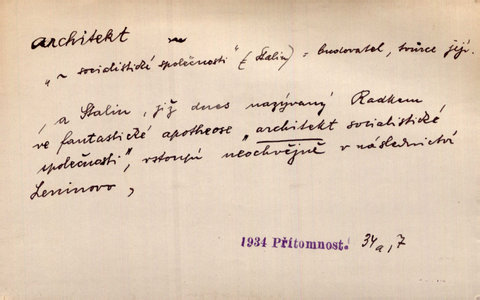 architekt ~
"~ socialistické společnosti" (Stalin) = budovatel, tvůrce její.
, a Stalin, již dnes nazývaný Radkem
ve fantastické apotheose "architekt socialistické
společnosti", vstoupí neochvějně v následnictví
Leninovo,
1934 Přítomnost. 34a, 7